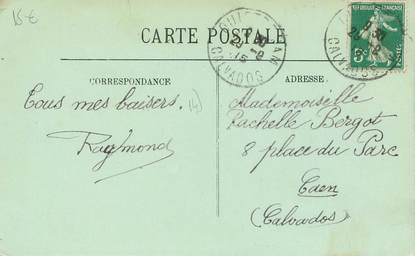 15 €
CARTE POSTALE
CORRESPONDANCE
ADRESSE
Tous mes baisers.
Raymond
Mademoiselle
Rachelle Bergot
8 place du Parc
Caen
(Calvados)
CALVADOS
CALVADOS